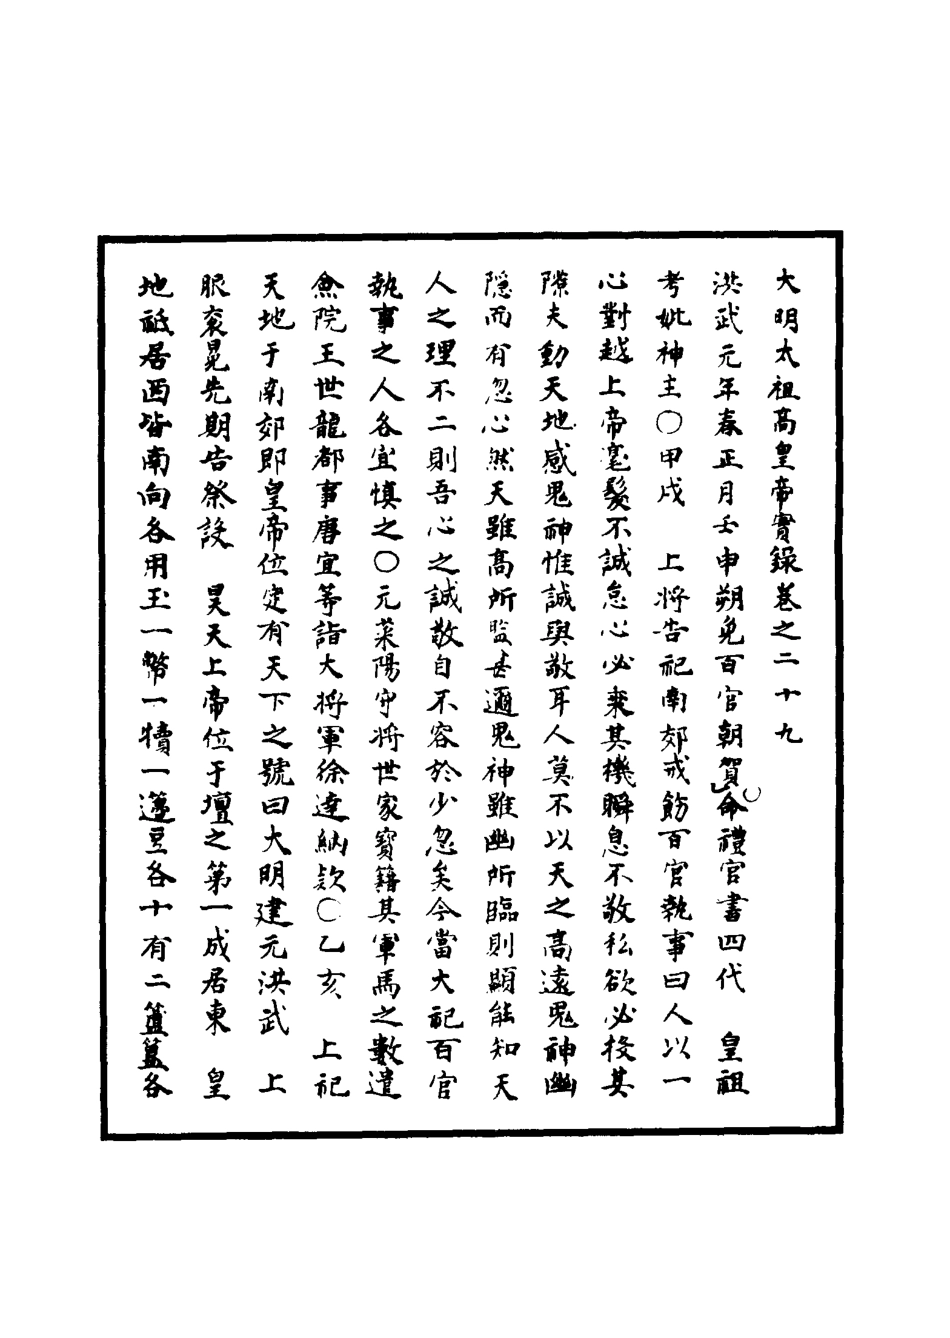 大明太祖高皇帝實錄卷之二十九
洪武元年春正月壬申朔免百官朝賀命禮官書四代　皇祖
考妣神主〇甲戌　上將告祀南郊戒飭百官執事曰人以一
心對越上帝毫髮不誠怠心必乘其機瞬息不敬私欲必投其
隙夫動天地感鬼神惟誠與敬耳人莫不以天之高遠鬼神幽
隱而有忽心然天雖高所監甚邇鬼神雖幽所臨則顯能知天
人之理不二則吾心之誠敬自不容於少忽矣今當大祀百官
執事之人各宜慎之〇元萊陽守將世家寶籍其軍馬之數遣
僉院王世龍都事唐宜等詣大將軍徐達納欵〇乙亥　上祀
天地于南郊即皇帝位定有天下之號曰大明建元洪武　上
服衮冕先期告祭設　昊天上帝位于壇之第一成居東　皇
地祗居西皆南向各用玉一幣一犢一籩豆各十有二簠簋各